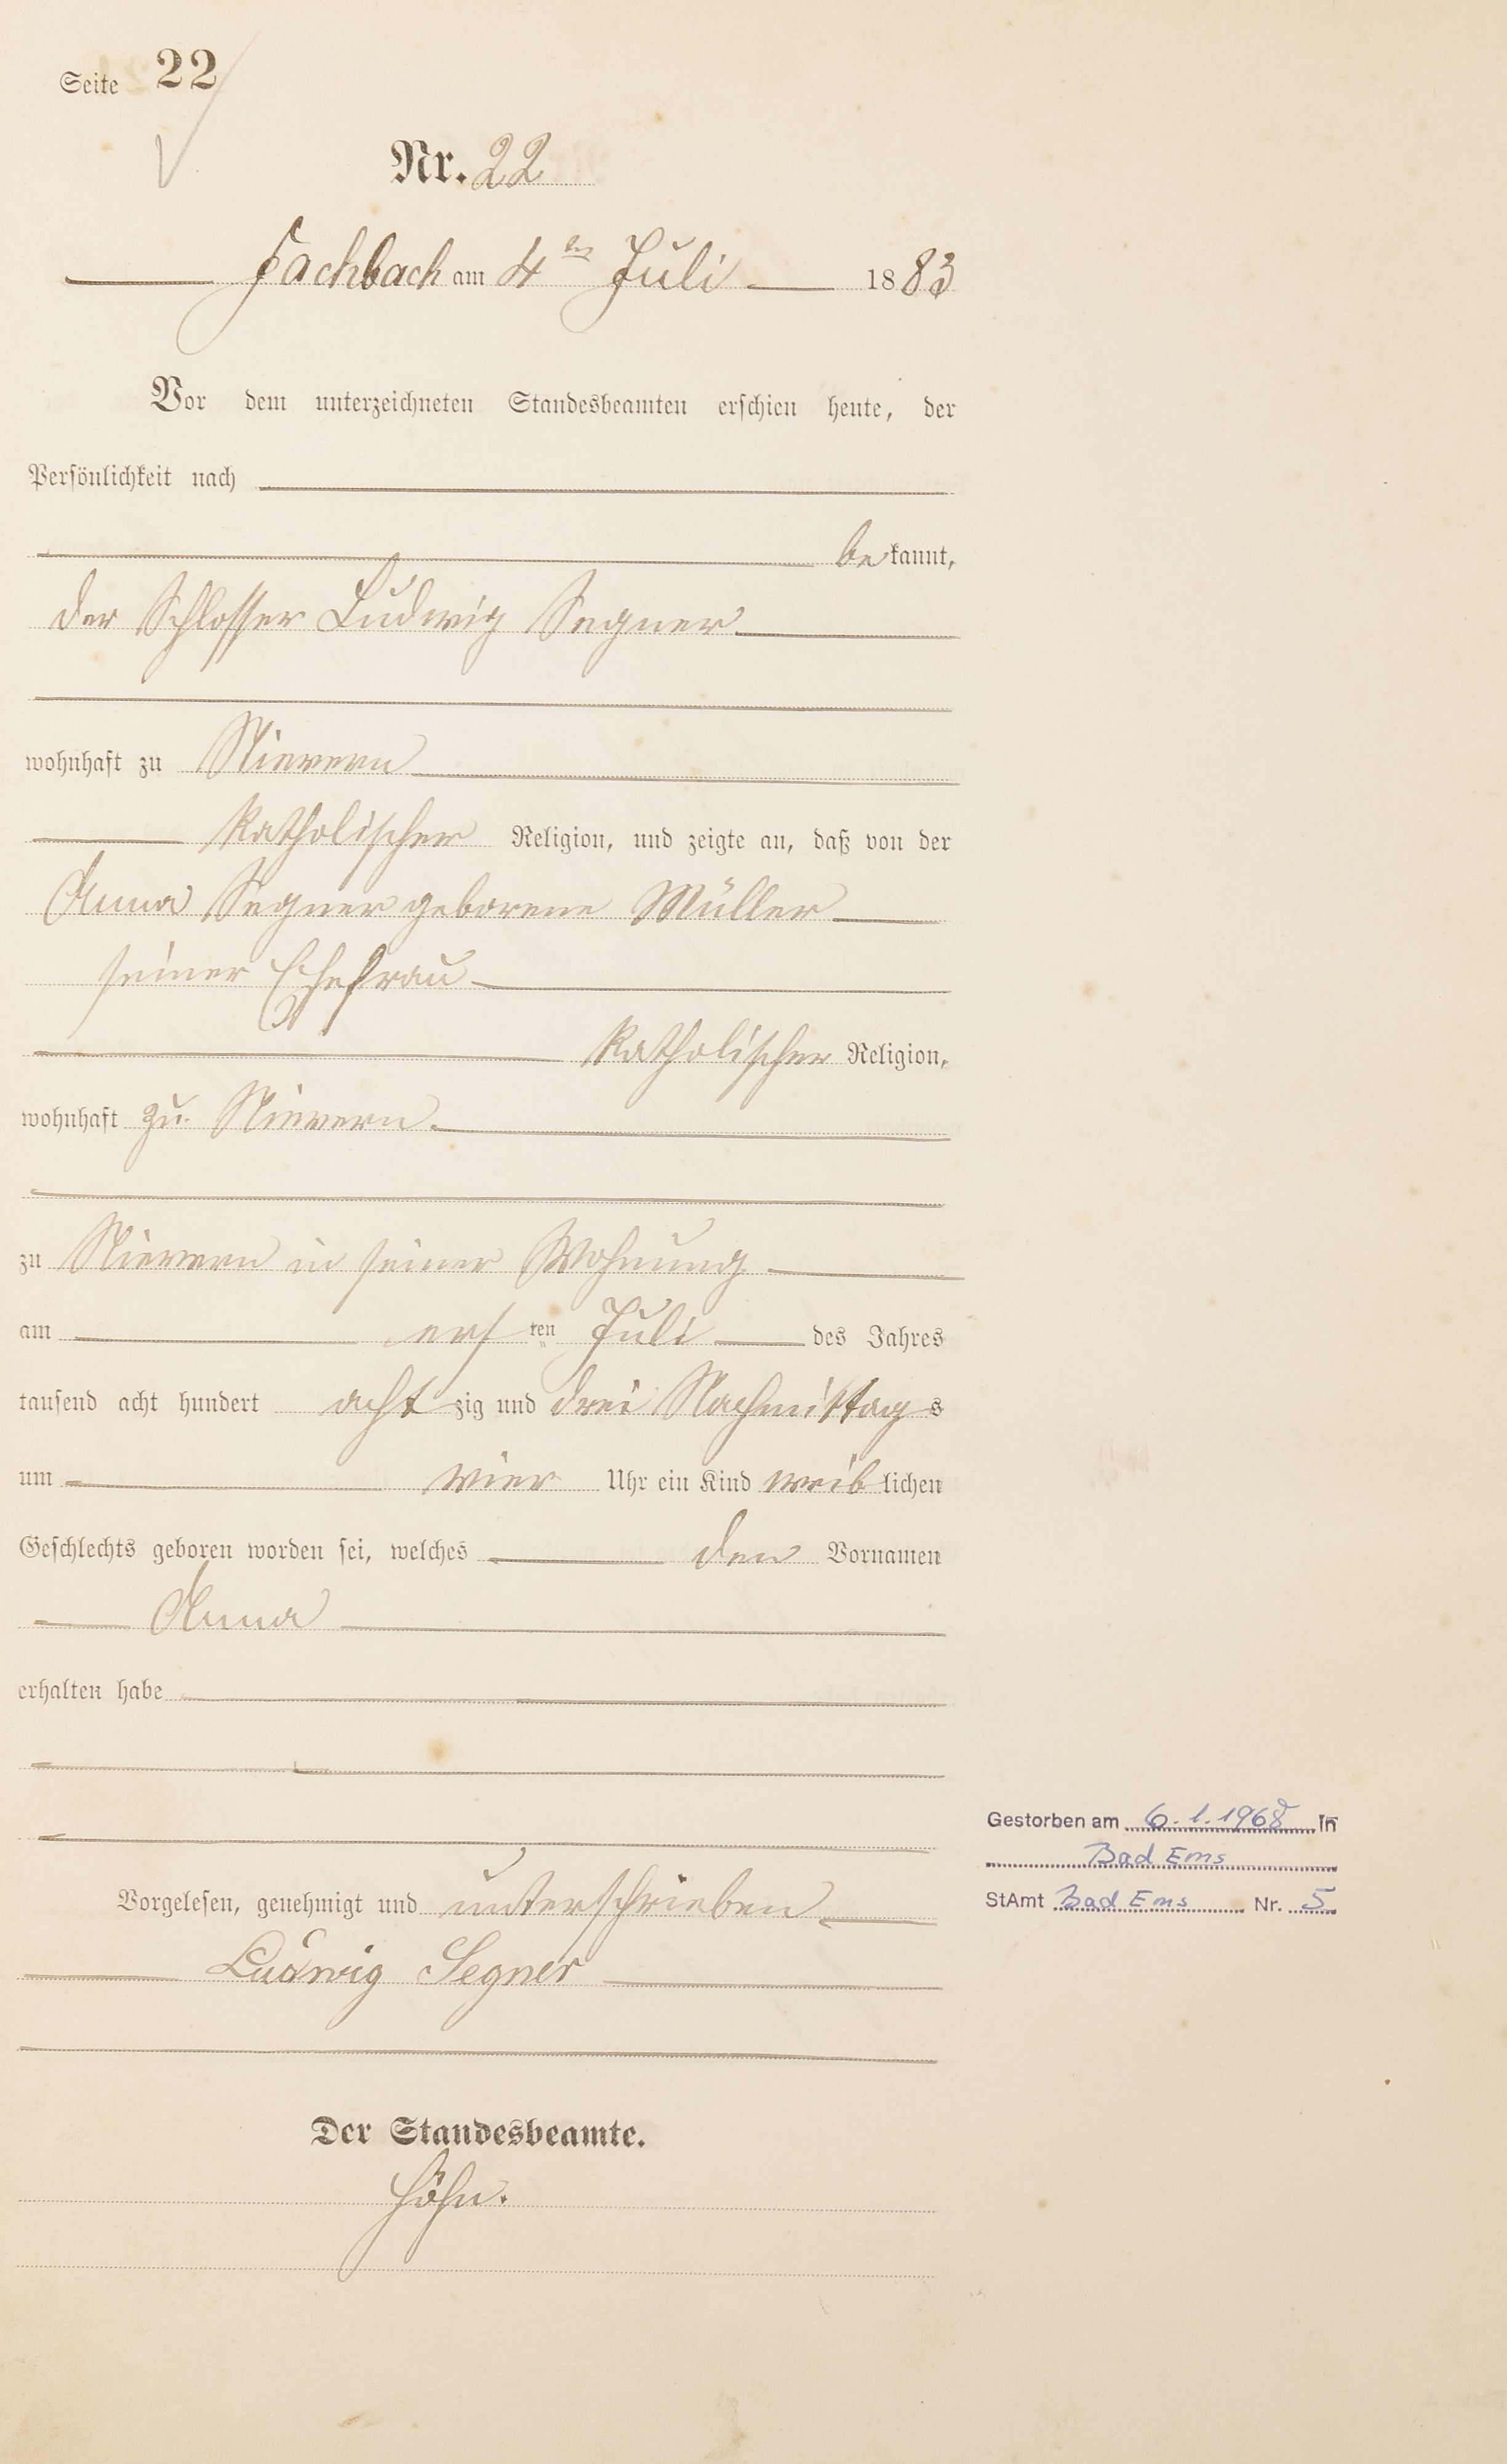 Seite 22
Nr. 22
Fachbach am 4ten Juli 1883
Vor dem unterzeichneten Standesbeamten erschien heute, der
Persönlichkeit nach
bekannt,
der Schlosser Ludwig Segner
wohnhaft zu Nievern
katholischer Religion, und zeigte an, daß von der
Anna Segner geborene Müller
seiner Ehefrau
katholischer Religion,
wohnhaft zu Nievern
zu Nievern in seiner Wohnung
am ersten Juli des Jahres
tausend acht hundert achtzig und drei Nachmittags
um vier Uhr ein Kind weiblichen
Geschlechts geboren worden sei, welches den Vornamen
Anna
erhalten habe
Gestorben am 6.1.1968 in
Bad Ems
StAmt Bad Ems Nr. 5
Vorgelesen, genehmigt und unterschrieben
Ludwig Segner
Der Standesbeamte.
Höhn.